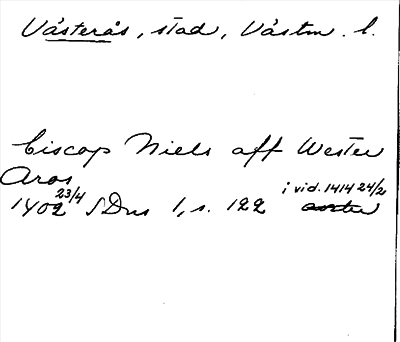 Västerås, stad, Västm. l.
biscop Niels aff Wester
Aros
1402 23/4 SDns 1, s. 122 i vid. 1414 24/2